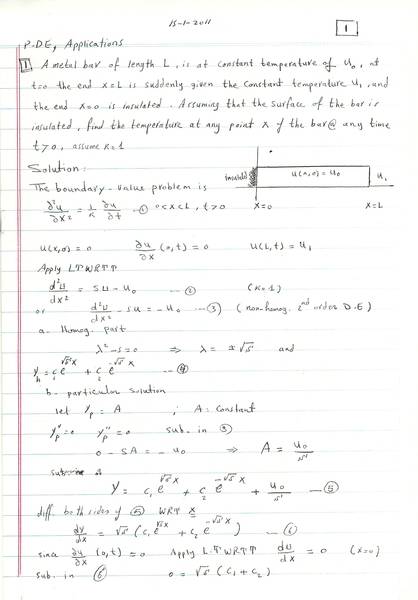 15-1-2011
1
P.DE, Applications
1 A metal bar of length L, is at constant temperature of U₀, at
t=0 the end x=L is suddenly given the Constant temperature U₁, and
the end x=0 is insulated. Assuming that the surface of the bar is
insulated, find the temperature at any point x of the bar @ any time
t>0, assume K=1
Solution:
insulated U(x,0) = U₀ U₁
The boundary-value problem is
x=0 x=L
∂²U/∂x² = 1/K ∂U/∂t —① 0<x<L, t>0
U(x,0) = 0 ∂U/∂x (0,t) = 0 U(L,t) = U₁
Apply LT WRTT
d²U/dx² = SU - U₀ —② (K=1)
or d²U/dx² - SU = - U₀ —③ (non-homog. 2nd order D.E)
a- Homog. part
λ² - S = 0 ⇒ λ = ±√S and
y_h = C₁ e^(√S x) + C₂ e^(-√S x) —④
b- particular solution
let Y_p = A ; A: constant
Y_p' = 0 Y_p'' = 0 sub. in ③
0 - SA = - U₀ ⇒ A = U₀/S
Y = C₁ e^(√S x) + C₂ e^(-√S x) + U₀/S —⑤
diff both sides of ⑤ WRT x
dy/dx = √S (C₁ e^(√S x) + C₂ e^(-√S x)) —⑥
since ∂U/∂x (0,t) = 0 Apply L.T WRTT dU/dx = 0 (x=0)
sub. in ⑥ 0 = √S (C₁ + C₂)